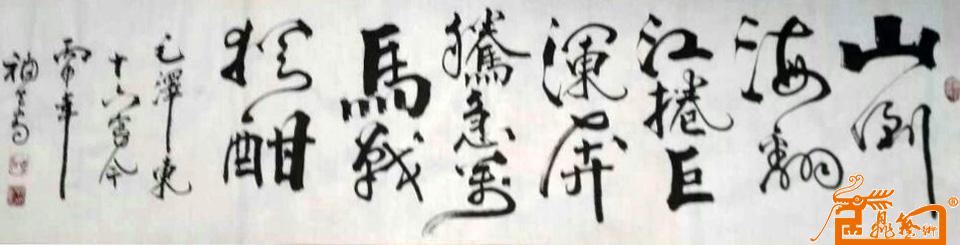 山倒
海翻
江捲巨
瀾奔
騰急萬
馬戰
猶酣
毛澤東
十六字令